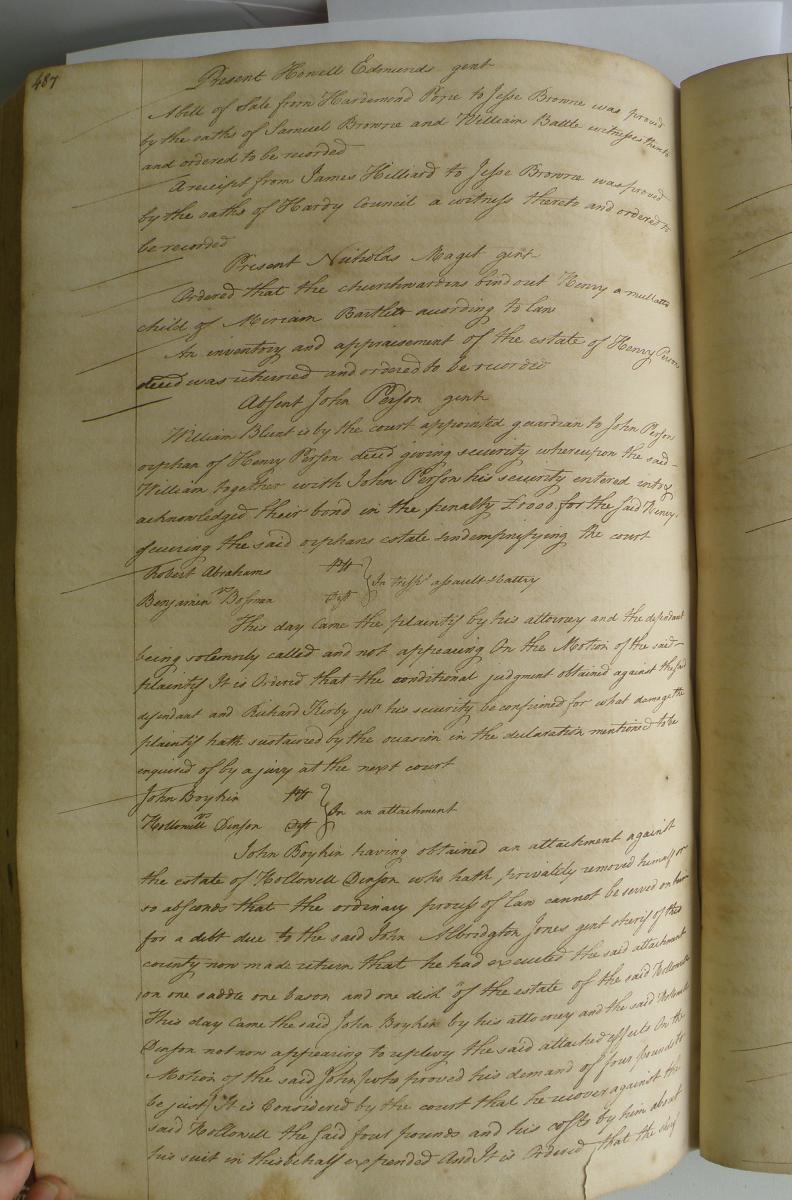 487
Present Howell Edmunds gent
A bill of Sale from Hardemond Pope to Jesse Browne was proved
by the oaths of Samuel Browne and William Battle witnesses thereto
and ordered to be recorded
A receipt from James Hilliard to Jesse Browne was proved
by the oaths of Hardy Council a witness thereto and ordered to
be recorded
Present Nicholas Maget gent
Ordered that the churchwardens bind out Henry a mullatto
child of Miriam Bartlett acording to law
An inventory and appraisement of the estate of Henry Person
deced was returned and ordered to be recorded
Absent John Person gent
William Blunt is by the court appointed guardian to John Person
orphan of Henry Person deced giving security whereupon the said
William together with John Person his security entered into &
acknowledged their bond in the penalty for the said Henry
securing the said orphans estate & indempnifying the court
Robert Abrahams Plt
vs In tresps assault & battry
Benjamin Bosman Deft
This day came the plaintif by his attorney and the defendant
being solemnly called and not appearing On the Motion of the said
plaintif It is Ordered that the conditional judgment obtained against the said
defendant and Richard Kirby jur his security be confirmed for what damage the
plaintif hath sustained by the ocasion in the declaration mentioned to be
enquired of by a jury at the next court
John Boykin Plt
vs In an attachment
Hollowell Dinson Deft
John Boykin having obtained an attachment against
the estate of Hollowell Dinson who hath privatily removed himself or
so absconds that the ordinary process of law cannot be served on him
for a debt due to the said John Albridgton Jones gent sherif of this
county now made return that he had executed the said attachment
on one saddle one bason and one dish of the estate of the said Hollowell
This day came the said John Boykin by his attorney and the said Hollowell
Dinson not now appearing to replevy the said attached effects On the
Motion of the said John (who proved his demand of four pounds to
be just) It is Considered by the court that he recover against the
said Hollowell the said four pounds and his costs by him about
his suit in this behalf expended And It is Ordered that the